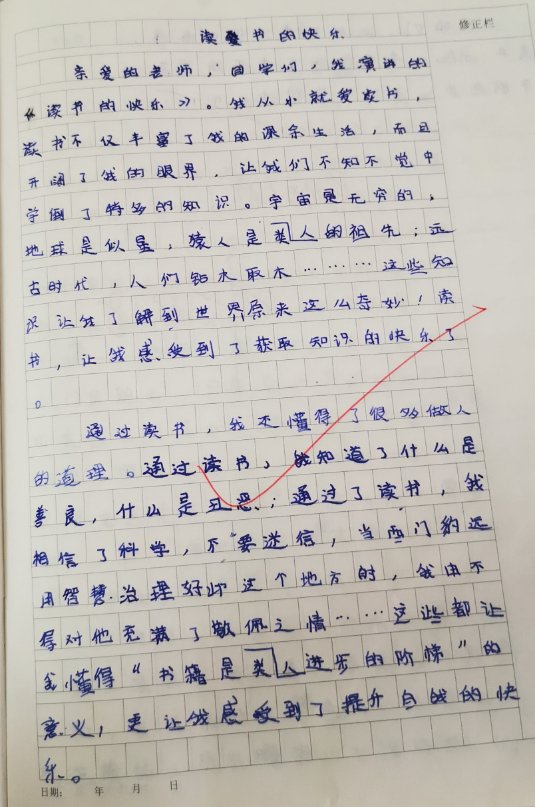 读爱书的快乐
修正栏
亲爱的老师,同学们,我演讲的
《读书的快乐》。我从小就爱读书,
读书不仅丰富了我的课余生活,而且
开阔了我的眼界,让我们不知不觉中
学倒了许多的知识。宇宙是无穷的,
地球是似星,猿人是类人的祖先;远
古时代,人们钻木取木……这些知
识让我了解到世界原来这么奇妙!读
书,让我感受到了获取知识的快乐了
。
通过读书,我还懂得了很多做人
的道理。通过读书,我知道了什么是
善良,什么是丑恶;通过了读书,我
相信了科学,不要迷信,当西门豹
用智慧治理好邺这个地方时,我由不
得对他充满了敬佩之情……这些都让
我懂得“书籍是类人进步的阶梯”的
意义,更让我感受到了提升自我的快
乐。
日期: 年 月 日